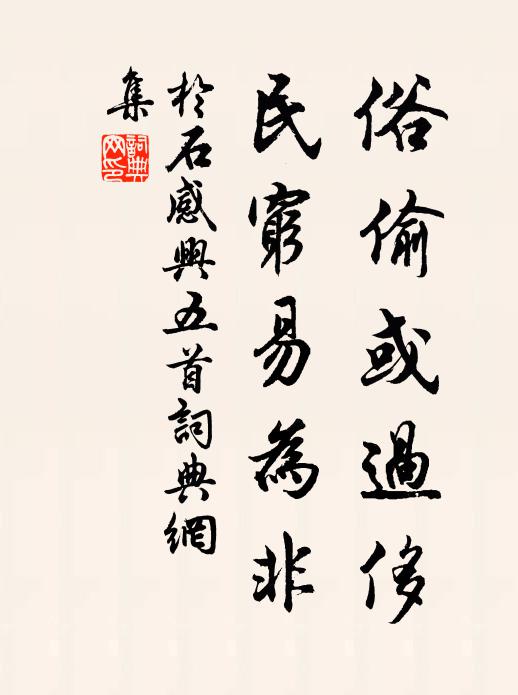 俗偷或過侈
民窮易為非
於石感興五首詞典網
集
詞典
网印